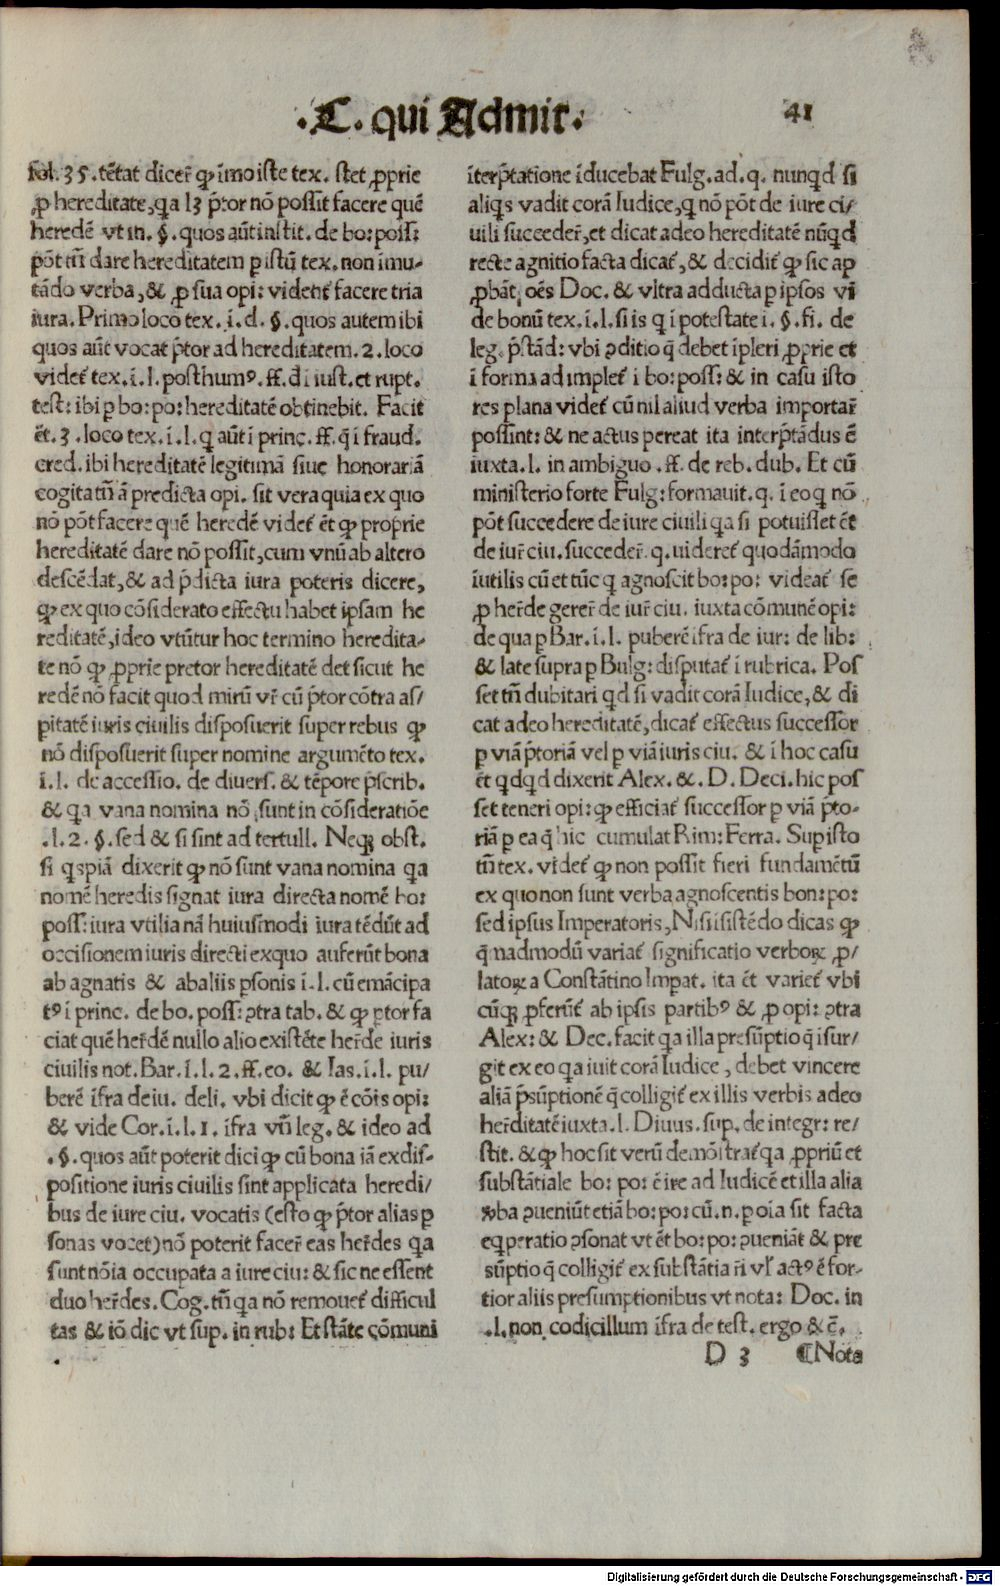 .C. qui Admit.
41
fol. 35. tētat dicer̄ ꝙ īmo iste tex. stet ꝓprie
ꝓ hereditate, qa lꝫ p̄tor nō possit facere quē
heredē vt in. §. quos aūt instit. de bo: poss:
pōt tn̄ dare hereditatem p istū tex. non īmu-
tādo verba, & ꝓ sua opi: vident᷑ facere tria
iura. Primo loco tex. i. d. §. quos autem ibi
quos aūt vocat p̄tor ad hereditatem. 2. loco
videt᷑ tex. i. l. posthumꝰ. ff. d̄ iust. et rupt.
test: ibi p bo: po: hereditatē obtinebit. Facit
ēt. 3. loco tex. i. l. q aūt i princ. ff. q̄ i fraud.
cred. ibi hereditatē legitimā siue honorariā
cogita tn̄ ā predicta opi. sit vera quia ex quo
nō pōt facere quē heredē videt᷑ ēt ꝙ proprie
hereditatē dare nō possit, cum vnū ab altero
descēdat, & ad p̄dicta iura poteris dicere,
ꝙ ex quo cōsiderato effectu habet ipsam he
reditatē, ideo vtūtur hoc termino heredita-
te nō ꝙ ꝓprie pretor hereditatē det sicut he
redē nō facit quod mirū vr̄ cū p̄tor cōtra as/
pitatē iuris ciuilis disposuerit super rebus ꝙ
nō disposuerit super nomine argumēto tex.
i. l. de accessio. de diuers. & tēpore p̄scrib.
& qa vana nomina nō sunt in cōsideratiōe
.l. 2. §. sed & si sint ad tertull. Neqꝫ obst.
si qspiā dixerit ꝙ nō sunt vana nomina qa
nomē heredis signat iura directa nomē bo:
poss: iura vtilia nā huiusmodi iura tēdūt ad
occisionem iuris directi exquo auferūt bona
ab agnatis & ab aliis psonis i. l. cū emācipa
tꝰ i princ. de bo. poss: ꝯtra tab. & ꝙ ptor fa
ciat quē her̄dē nullo alio existēte her̄de iuris
ciuilis not. Bar. i. l. 2. ff. eo. & Ias. i. l. pu/
berē ifra de iu. deli. vbi dicit ꝙ ē cōis opi:
& vide Cor. i. l. 1. ifra vn̄ leg. & ideo ad
.§. quos aūt poterit dici ꝙ cū bona iā ex dis-
positione iuris ciuilis sint applicata heredi/
bus de iure ciu. vocatis (esto ꝙ p̄tor alias p
sonas vocet) nō poterit facer̄ eas her̄des qa
sunt nōia occupata a iure ciu: & sic ne essent
duo her̄des. Cog. tn̄ qa nō remouet᷑ difficul
tas & iō dic vt sup. in rub: Et stāte cōmuni
iterp̄tatione iducebat Fulg. ad. q. nunqd si
aliqs vadit corā Iudice, q nō pōt de iure ci/
uili succeder̄, et dicat adeo hereditatē nūqd
recte agnitio facta dicat᷑, & decidit᷑ ꝙ sic ap
ꝓbāt oēs Doc. & vltra adducta p ipsos vi
de bonū tex. i. l. si is q i potestate i. §. fi. de
leg. p̄stād: vbi ꝯditio q̄ debet ipleri ꝓprie et
i forma adimplet᷑ i bo: poss: & in casu isto
res plana videt᷑ cū nil aliud verba importar̄
possint: & ne actus pereat ita interp̄tādus ē
iuxta. l. in ambiguo. ff. de reb. dub. Et cū
ministerio forte Fulg: formauit. q. i eo q nō
pōt succedere de iure ciuili qa si potuisset ēt
de iur̄ ciu. succeder̄. q. uideret᷑ quodāmodo
iutilis cū et tūc q agnoscit bo: po: videat᷑ se
ꝓ her̄de gerer̄ de iur̄ ciu. iuxta cōmunē opi:
de qua p Bar. i. l. puberē ifra de iur: de lib:
& late supra p Bulg: disputat᷑ i rubrica. Pos
set tn̄ dubitari qd si vadit corā Iudice, & di
cat adeo hereditatē, dicat᷑ effectus successor
p viā p̄toriā vel p viā iuris ciu. & i hoc casu
ēt qdqd dixerit Alex. &. D. Deci. hic pos
set teneri opi: ꝙ efficiat᷑ successor p viā p̄to-
riā p ea q̄ hic cumulat Rim: Ferra. Sup isto
tn̄ tex. videt᷑ ꝙ non possit fieri fundamētū
ex quo non sunt verba agnoscentis bon: po:
sed ipsius Imperatoris, Nisi isistēdo dicas ꝙ
q̄nadmodū variat᷑ significatio verboꝝ ꝓ/
latoꝝ a Constātino Impat. ita ēt variet᷑ vbi
cūqꝫ ꝓferūt᷑ ab ipsis partibꝰ & ꝓ opi: ꝯtra
Alex: & Dec. facit qa illa presūptio q̄ isur/
git ex eo qa iuit corā Iudice, debet vincere
aliā p̄sūptionē q̄ colligit᷑ ex illis verbis adeo
her̄ditatē iuxta. l. Diuus. sup. de integr: re/
stit. & ꝙ hoc sit verū demōstrat᷑ qa ꝓpriū et
substātiale bo: po: ē ire ad Iudicē et illa alia
ꝟba ꝯueniūt etiā bo: po: cū. n. p oīa sit facta
eqperatio ꝯsonat vt ēt bo: po: ꝯueniāt & pre
sūptio q̄ colligit᷑ ex substātia r̄i vl᷑ actꝰ ē for-
tior aliis presumptionibus vt nota: Doc. in
.l. non codicillum ifra de test. ergo & c̄.
D 3 ¶Nota
Digitalisierung gefördert durch die Deutsche Forschungsgemeinschaft - DFG